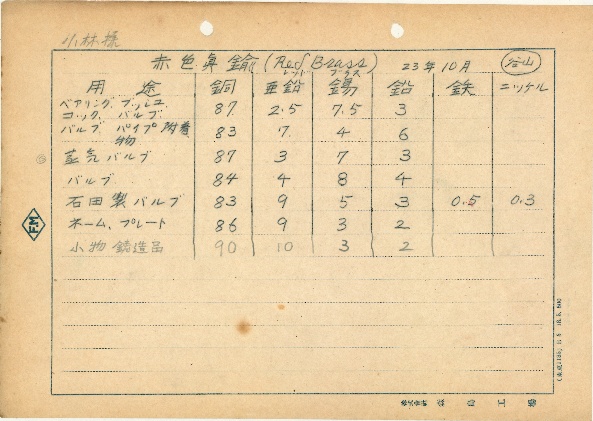 小林様
赤色真鍮(Red Brass) 23年10月 谷山
レッド ブラス
用途 銅 亜鉛 錫 鉛 鉄 ニッケル
ベアリング、ブッシュ
コック、バルブ 87 2.5 7.5 3
バルブ パイプ附着
物 83 7 4 6
蒸気バルブ 87 3 7 3
バルブ 84 4 8 4
石田製バルブ 83 9 5 3 0.5 0.3
ネーム、プレート 86 9 3 2
小物鋳造品 90 10 3 2
FM
株式会社 工場